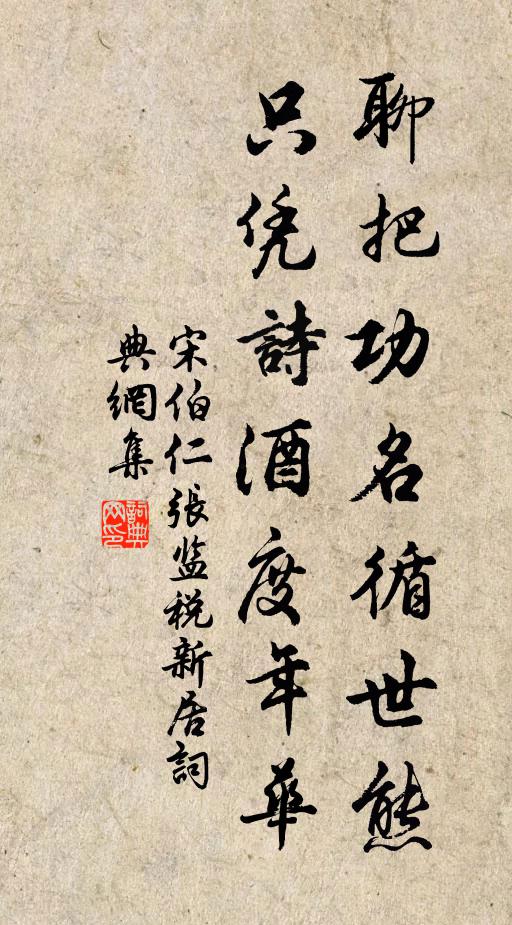 聊把功名循世態
只凭詩酒度年華
宋伯仁張监税新居詞
典網集
詞典
网印